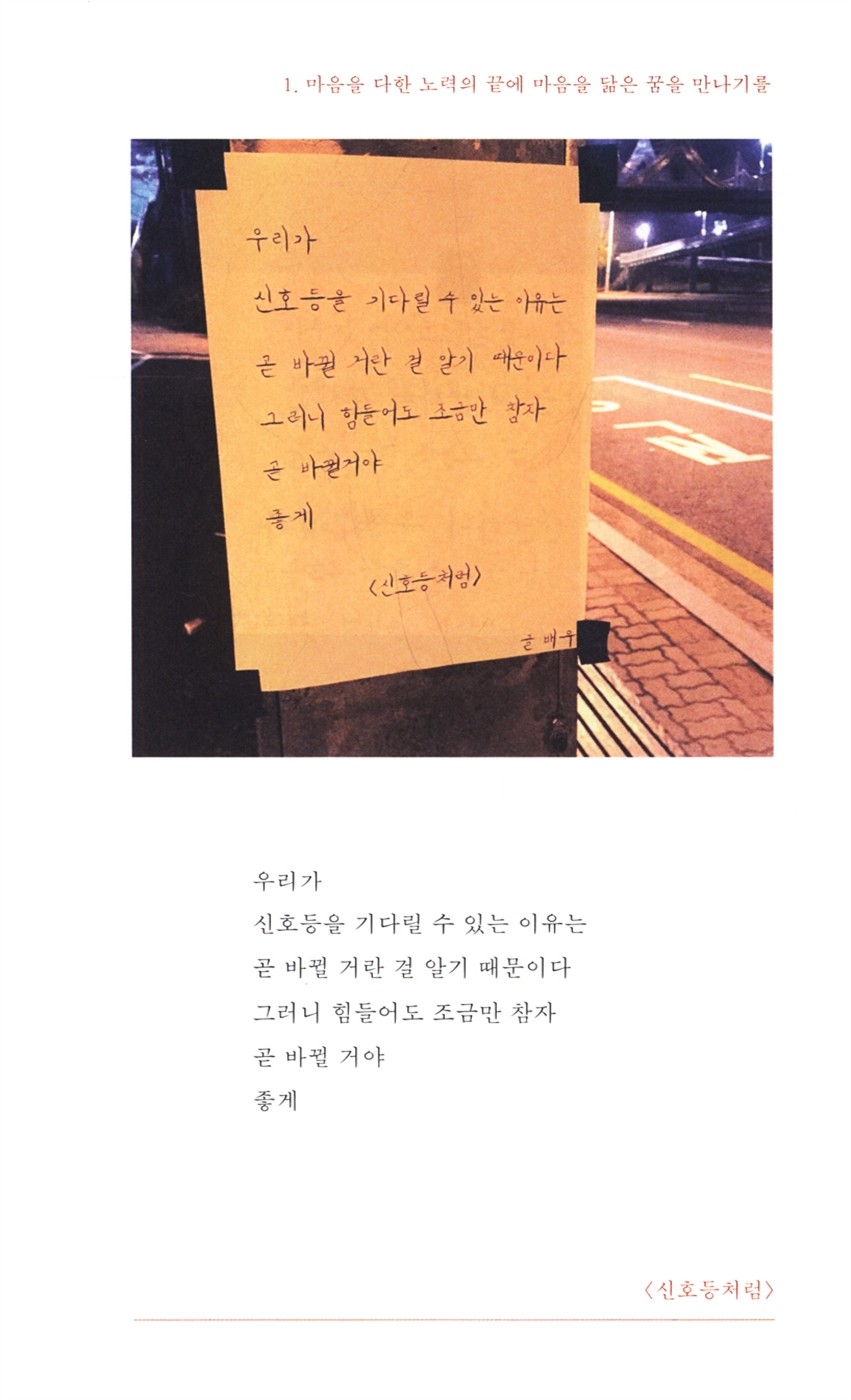 1. 마음을 다한 노력의 끝에 마음을 닮은 꿈을 만나기를
우리가
신호등을 기다릴 수 있는 이유는
곧 바뀔 거란 걸 알기 때문이다
그러니 힘들어도 조금만 참자
곧 바뀔거야
좋게
<신호등처럼>
글 배우
우리가
신호등을 기다릴 수 있는 이유는
곧 바뀔 거란 걸 알기 때문이다
그러니 힘들어도 조금만 참자
곧 바뀔 거야
좋게
<신호등처럼>